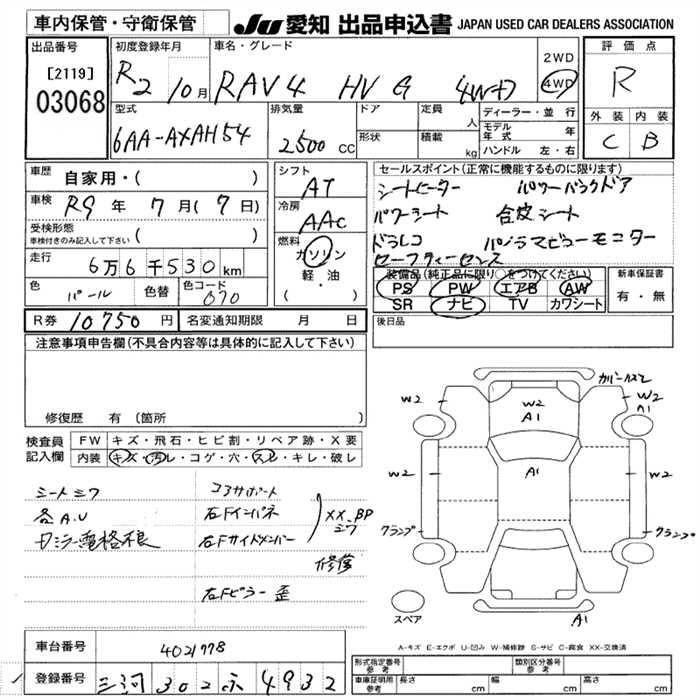 車内保管・守衛保管 JU 愛知 出品申込書 JAPAN USED CAR DEALERS ASSOCIATION
出品番号 [2119] 03068
初度登録年月 R2 10月
車名・グレード RAV4 HV G 4WD
2WD 4WD
評価点 R
外装 内装
C B
型式 6AA-AXAH54
排気量 2500 CC
ドア 形状
定員 人
積載 kg
ディーラー・並行
モデル年式 年
ハンドル 左・右
車歴 自家用・( )
車検 R9 年 7月(7日)
受検形態 車検付きのみ記入して下さい ( )
走行 6万6千530km
色 パール 色替 色コード 070
シフト AT
冷房 AAC
燃料 ガソリン 軽・油 ( )
セールスポイント(正常に機能するものに限ります)
シートヒーター パワーバックドア
パワーシート 合皮シート
ドラレコ パノラマビューモニター
セーフティーセンス
装備品(純正品に限り○をつけてください)
PS PW エアB AW
SR ナビ TV カワシート
新車保証書 有・無
R券 10750円 名変通知期限 月 日
後日品
注意事項申告欄(不具合内容等は具体的に記入して下さい)
修復歴 有 (箇所 )
検査員記入欄
FW キズ・飛石・ヒビ割・リペア跡・X要
内装 キズ・汚レ・コゲ・穴・スレ・キレ・破レ
シートシワ コアサポート
各A.U 右Fインパネ XX. BP
右Fサイドメンバー シワ
修復
右Fピラー 歪
カバースレ
W2 W2 W2
A1 A1
W2 A1 W2
クランプ クランプ
A1
スペア
A-キズ E-エクボ U-凹み W-補修跡 S-サビ C-腐食 XX-交換済
車台番号 4021778
登録番号 三河 302 ふ 4932
形式指定番号 参考 類別区分番号 参考
車庫証明用 参考 長さ cm 幅 cm 高さ cm